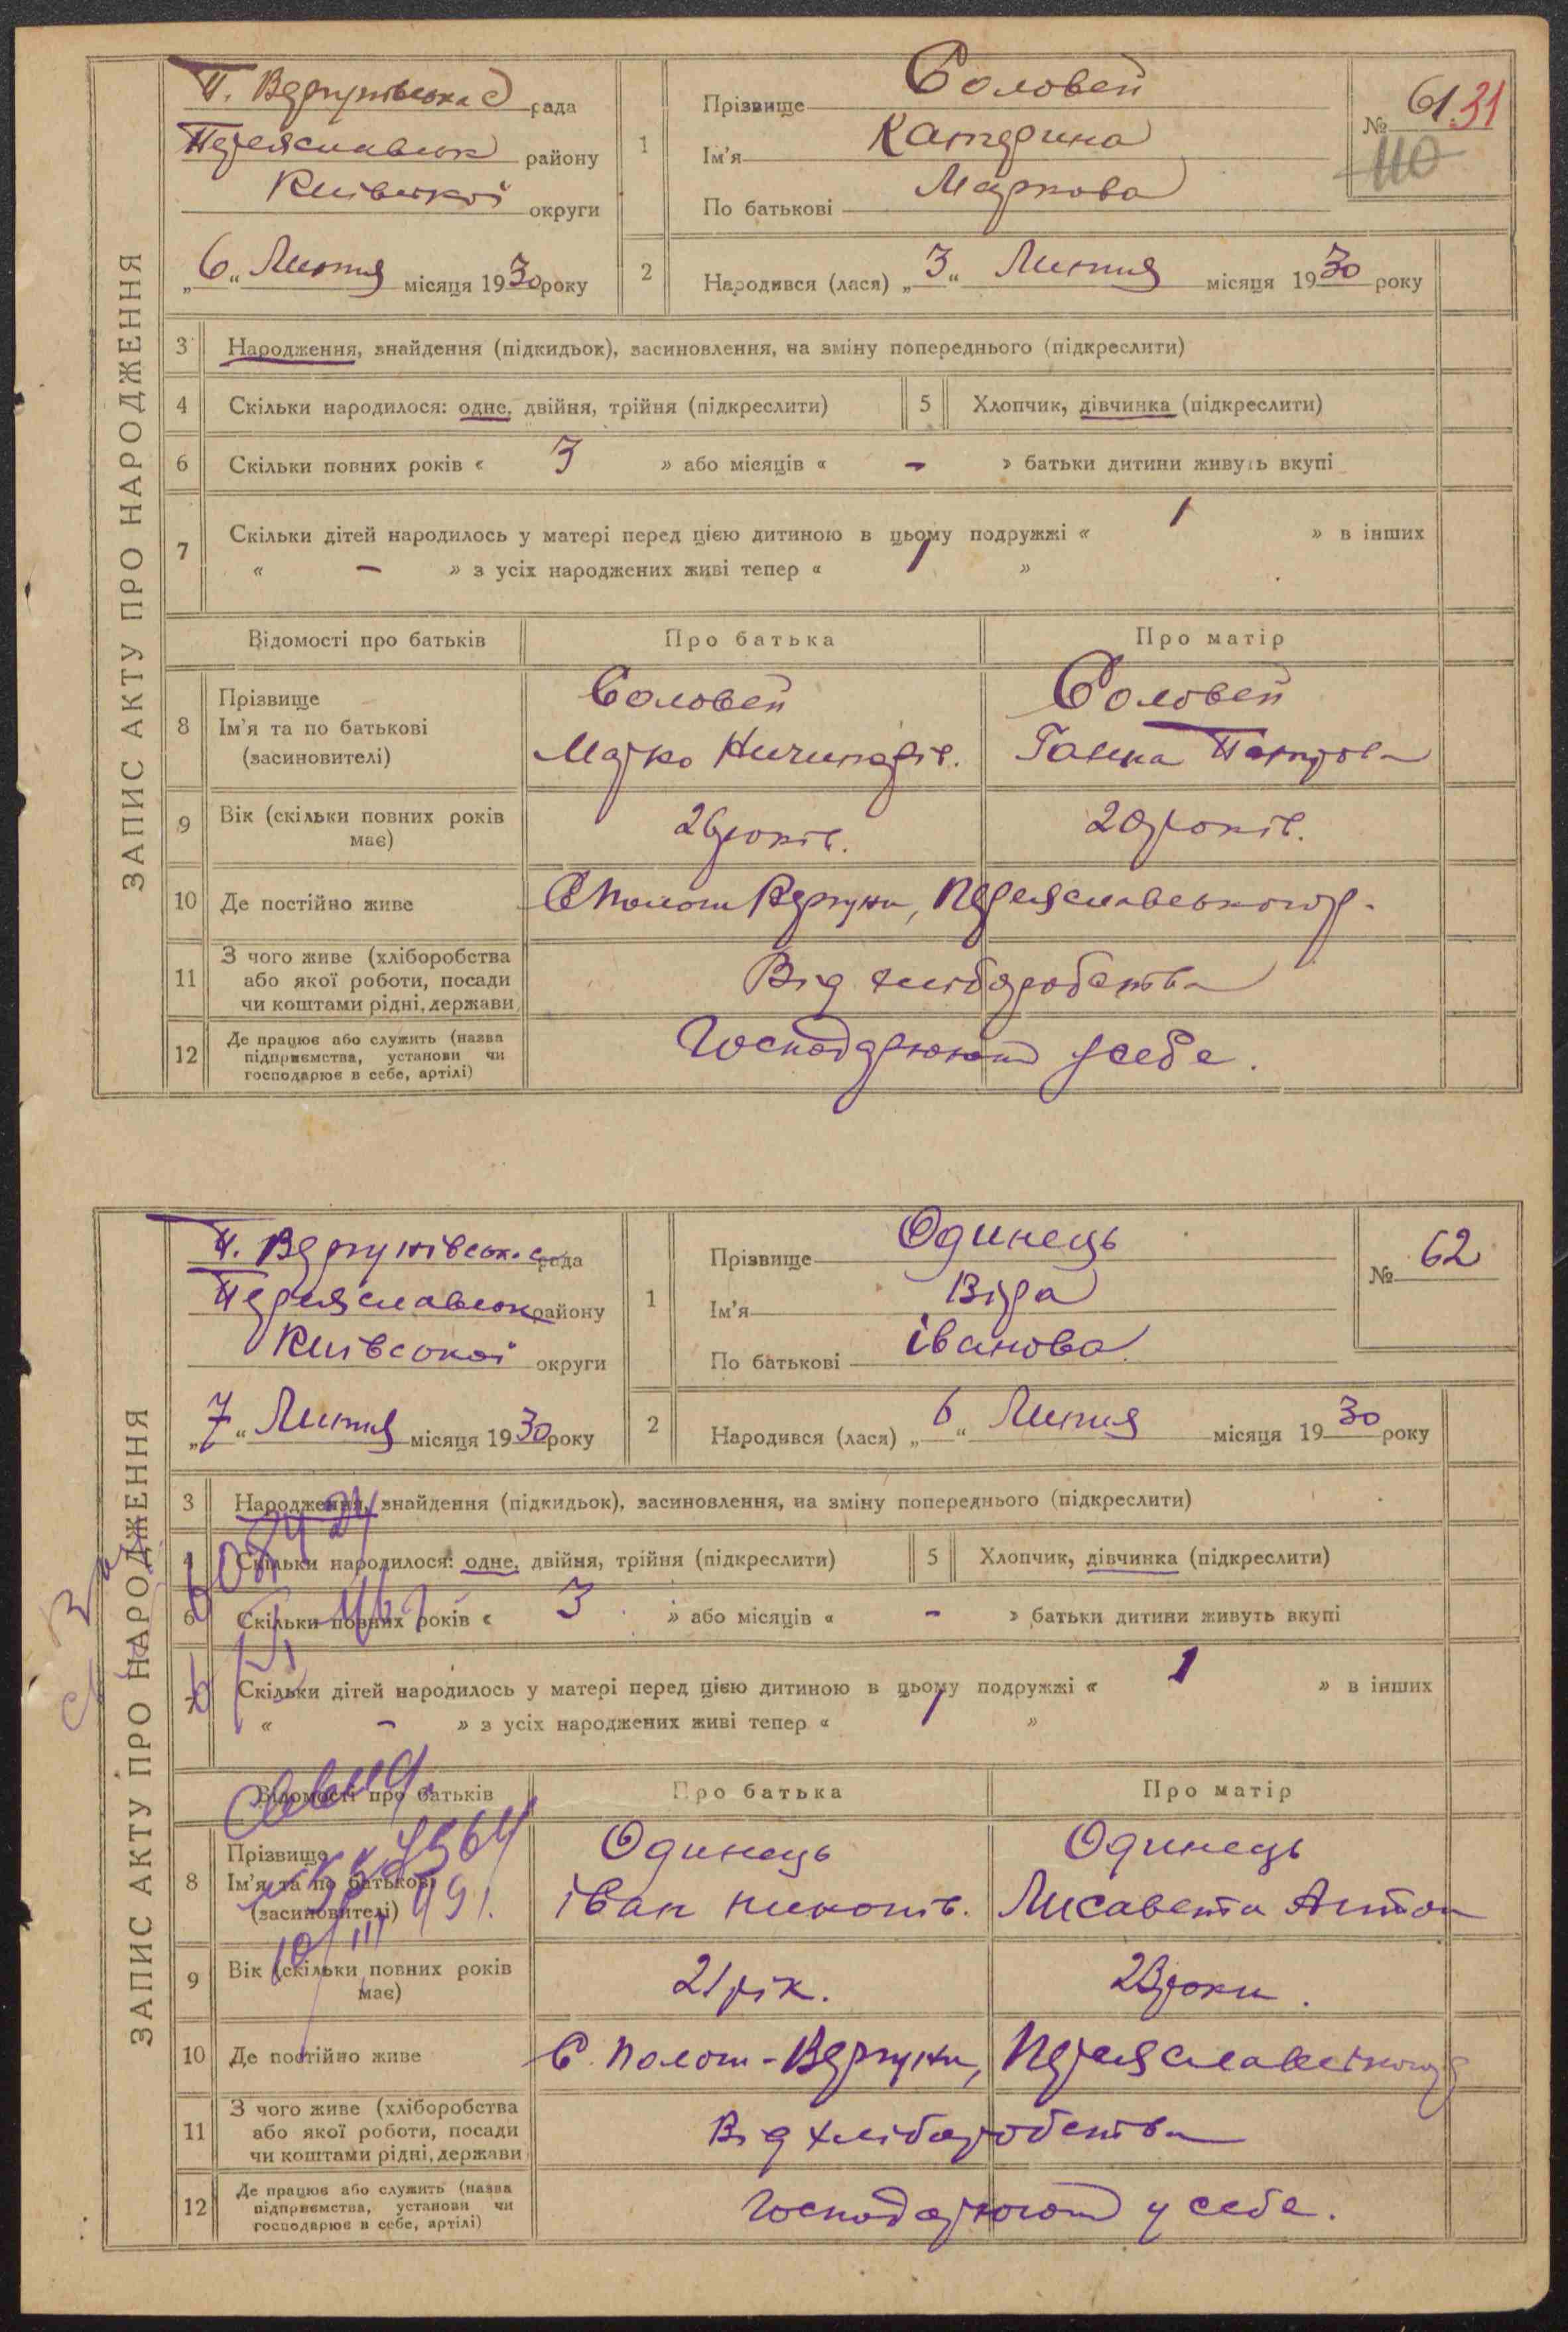 ЗАПИС АКТУ ПРО НАРОДЖЕННЯ
П. Вергунівська рада
Переяславськ району
Київської округи
„6“ Липня місяця 1930 року
1
Прізвище Соловей
Ім'я Катерина
По батькові Маркова
№ 61. 31
110
2
Народився (лася) „3“ Липня місяця 1930 року
3 Народження, знайдення (підкидьок), засиновлення, на зміну попереднього (підкреслити)
4 Скільки народилося: одне, двійня, трійня (підкреслити) 5 Хлопчик, дівчинка (підкреслити)
6 Скільки повних років « 3 » або місяців « - » батьки дитини живуть вкупі
7 Скільки дітей народилось у матері перед цією дитиною в цьому подружжі « 1 » в інших
« - » з усіх народжених живі тепер « 1 »
Відомості про батьків Про батька Про матір
8 Прізвище Соловей Соловей
Ім'я та по батькові
(засиновителі) Марко Ничипорів. Ганна
9 Вік (скільки повних років має) 26 років. 20 років.
10 Де постійно живе С Полот Вергуни, Переяславського р.
11 З чого живе (хліборобства
або якої роботи, посади
чи коштами рідні, держави Від хліборобства
12 Де працює або служить (назва
підприємства, установи чи
господарює в себе, артілі) Господарюют у себе.
ЗАПИС АКТУ ПРО НАРОДЖЕННЯ
П. Вергунівськ. с рада
Переяславськ району
Київської округи
„7“ Липня місяця 1930 року
1
Прізвище Одинець
Ім'я Віра
По батькові Іванова
№ 62
2
Народився (лася) „6“ Липня місяця 1930 року
3 Народження, знайдення (підкидьок), засиновлення, на зміну попереднього (підкреслити)
4 Скільки народилося: одне, двійня, трійня (підкреслити) 5 Хлопчик, дівчинка (підкреслити)
6 Скільки повних років « 3 » або місяців « - » батьки дитини живуть вкупі
7 Скільки дітей народилось у матері перед цією дитиною в цьому подружжі « 1 » в інших
« - » з усіх народжених живі тепер « 1 »
Відомості про батьків Про батька Про матір
8 Прізвище Одинець Одинець
Ім'я та по батькові
(засиновителі) Іван Лисавета Антон
9 Вік (скільки повних років має) 21 рік. 23 роки.
10 Де постійно живе С. Полот-Вергуни, Переяславського р
11 З чого живе (хліборобства
або якої роботи, посади
чи коштами рідні, держави Від хліборобства
12 Де працює або служить (назва
підприємства, установи чи
господарює в себе, артілі) Господарюют у себе.